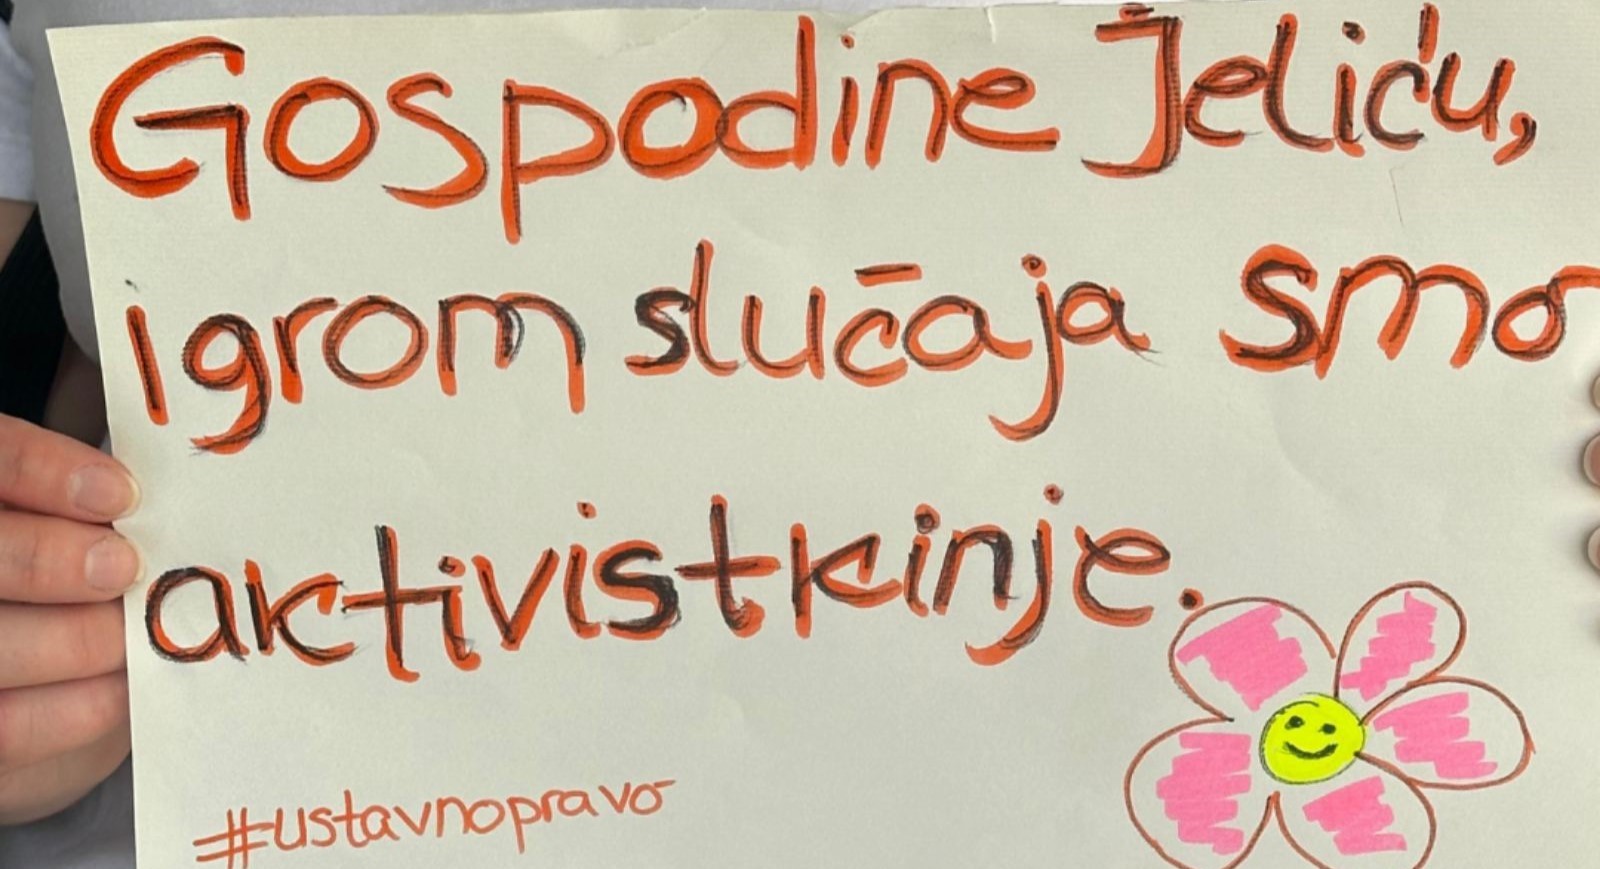 Gospodine Jeliću,
igrom slučaja smo
aktivistkinje.
#ustavnopravo